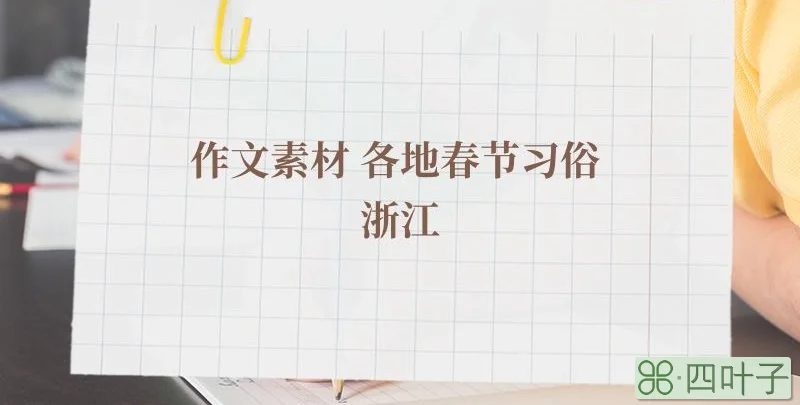 作文素材 各地春节习俗
浙江
四叶子